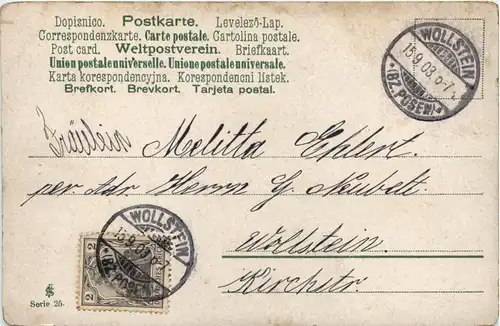 Dopisnico. Postkarte. Levelező-Lap.
Correspondenzkarte. Carte postale. Cartolina postale.
Post card. Weltpostverein. Briefkaart.
Union postale universelle. Unione postale universale.
Karta korespondencyjna. Korespondencní lístek.
Brefkort. Brevkort. Tarjeta postal.
WOLLSTEIN
15.9.03.6-7
*(BZ.POSEN)*
Fräulein Melitta Ehlert.
per Adr Herrn G. Neubelt.
Wollstein.
Kirchstr.
WOLLSTEIN
15.9.03
(BZ.POSEN)
2
2
Serie 25.